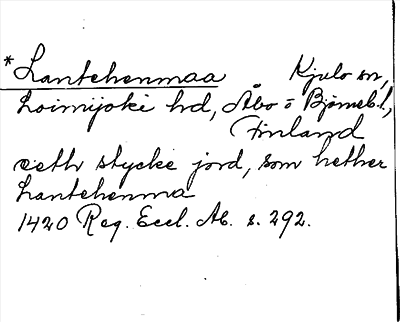 *Lantehenmaa Kjulo sn,
Loimijoki hd, Åbo o Björneb. l,
Finland
eeth stycke jord, som hether
Lantehenma
1420 Reg. Eccl. Ab. s. 292.